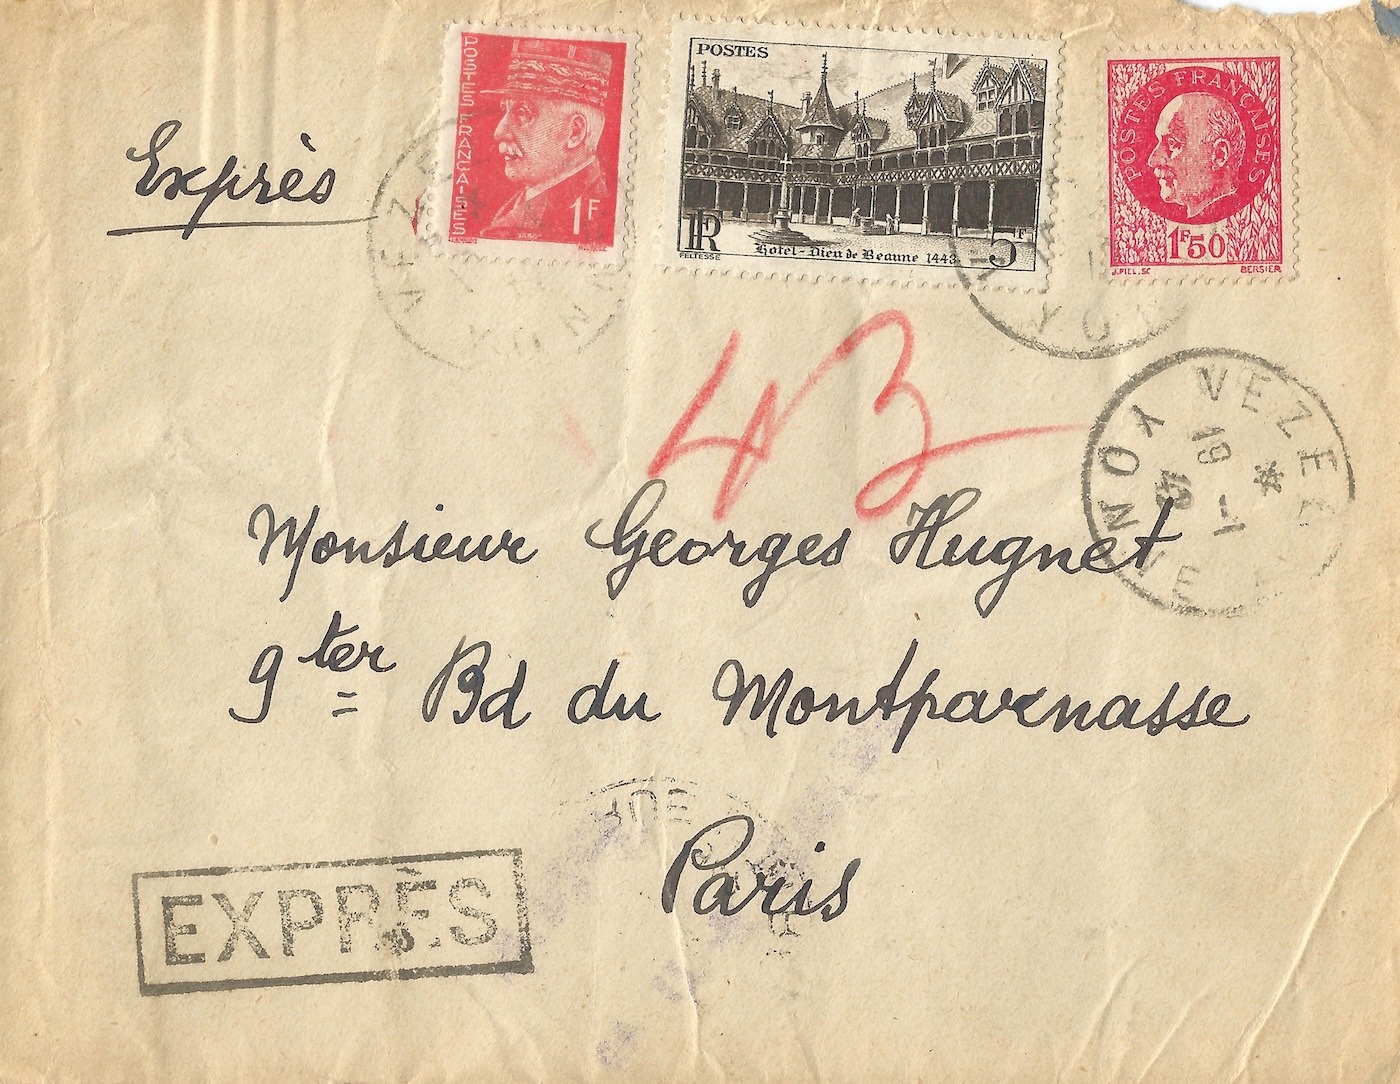 Exprès
POSTES FRANÇAISES
1F
POSTES
RF
Hotel-Dieu de Beaune 1443
5F
PELTESSE
POSTES FRANÇAISES
1F50
J.PIEL.SC BERSIER
43
VEZELAY
YONNE
19 -1
43
Monsieur Georges Hugnet
9 ter Bd du Montparnasse
Paris
EXPRÈS